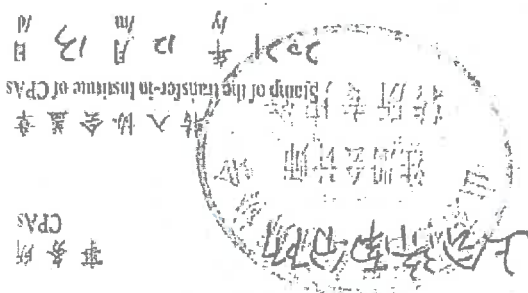 事务所
CPAs
注册会计师
转所专用章
转入协会盖章
Stamp of the transfer-in Institute of CPAs
2021 年 12 月 13 日
/y /m /d